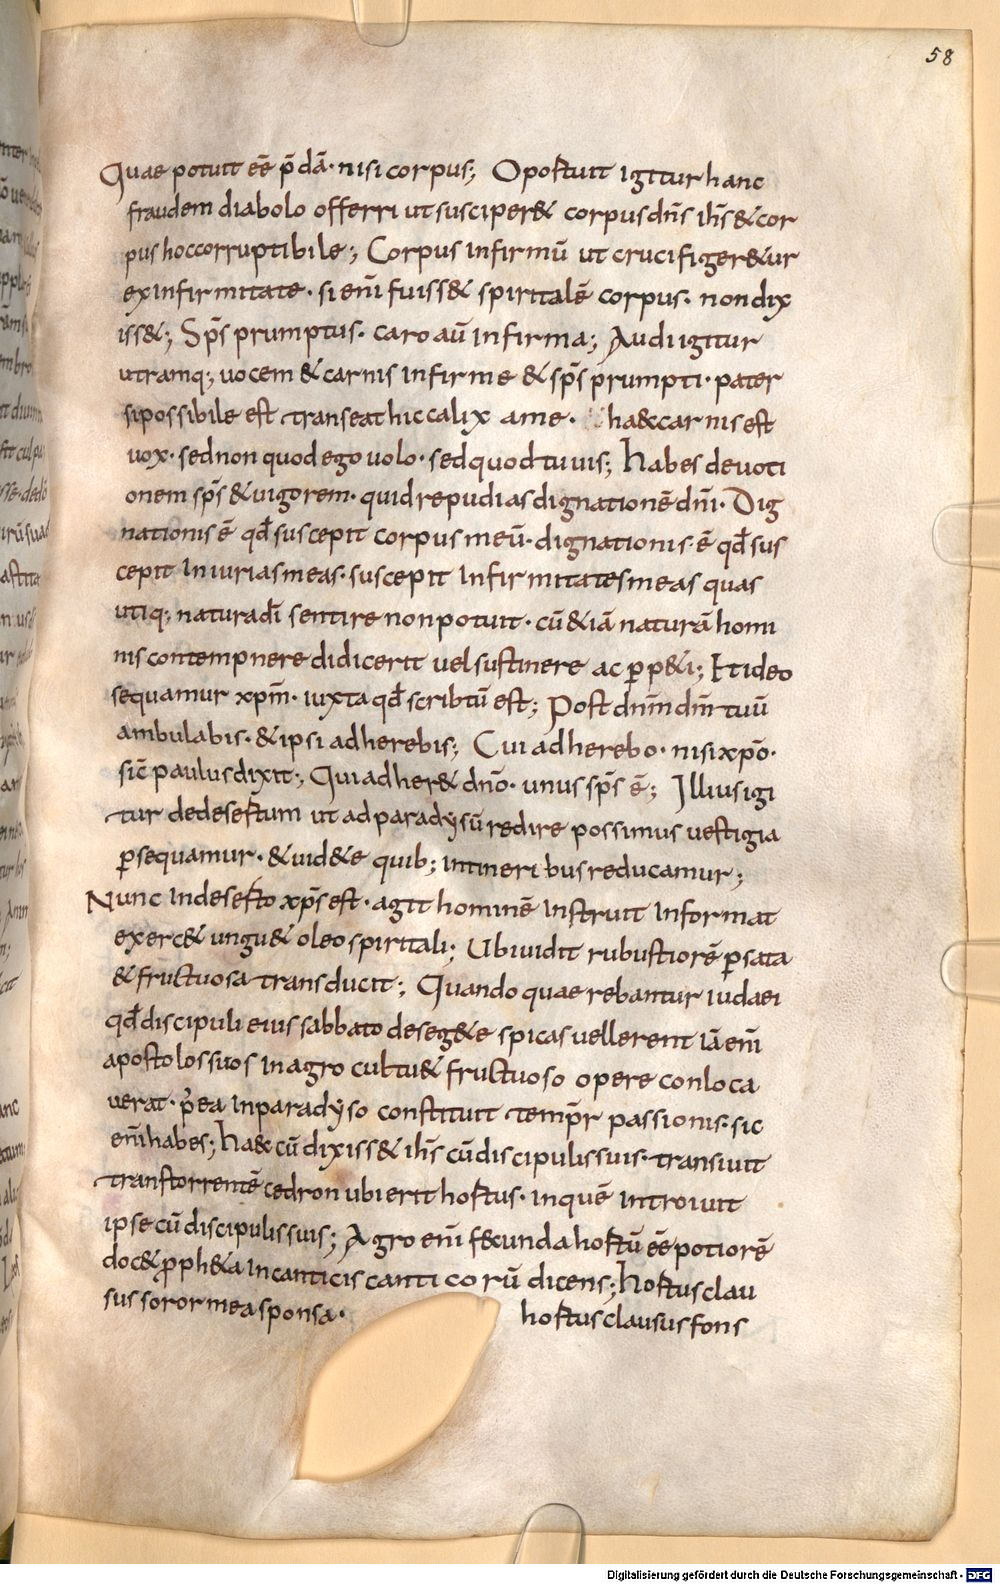 58
Quae potuit eē p̄dā· nisi corpus; Oportuit igitur hanc
fraudem diabolo offerri ut susciper& corpus dn̄s ih̄s & cor
pus hoc corruptibile; Corpus infirmū ut crucifiger&ur
ex infirmitate· si eni̅ fuiss& spiritalē corpus· non dix
iss&; Sp̄s prumptus· caro au̅ infirma; Audi igitur
utramq; uocem & carnis infirme & sp̄s prumpti· pater
si possibile est transeat hic calix a me· ha&c carnis est
uox· sed non quod ego uolo· sed quod tu uis; habes deuoti
onem sp̄s & uigorem· quid repudias dignationē dn̄i· Dig
nationis ē qd̄ suscepit corpus meū· dignationis ē qd̄ sus
cepit iniurias meas· suscepit infirmitates meas quas
utiq; natura dī sentire non potuit· cū & iā naturā homi
nis contempnere didicerit uel sustinere ac p̱p&i; Et ideo
sequamur xp̄m· iuxta qd̄ scribtū est; Post dn̄m dn̄m tuū
ambulabis· & ipsi adherebis; Cui adherebo· nisi xp̄o·
sic̄ paulus dixit; Qui adher& dn̄o· unus sp̄s ē; Illius igi
tur de desertum ut ad paradysū redire possimus uestigia
p̱sequamur· & uid&e quib; intineribus reducamur;
Nunc in deserto xp̄s est· agit hominē instruit informat
exerc& ungu& oleo spiritali; Ubi uidit rubustiorē p̱ sata
& fructuosa transducit; Quando quaerebantur iudaei
qd̄ discipuli eius sabbato de seg&e spicas uellerent iā eni̅
apostolos suos in agro cultu & fructuoso opere conloca
uerat· p̄ea in paradyso constituit temp̄r passionis· sic
eni̅ habes; ha&c cū dixiss& ih̄s cū discipulis suis· transiuit
trans torrentē cedron ubi erit hortus· in quē introiuit
ipse cū discipulis suis; Agro eni̅ fecunda hortū eē potiorē
doc& p̱ph&a in canticis canticorū dicens; hortus clau
sus soror mea sponsa· hortus clausus fons
Digitalisierung gefördert durch die Deutsche Forschungsgemeinschaft - DFG